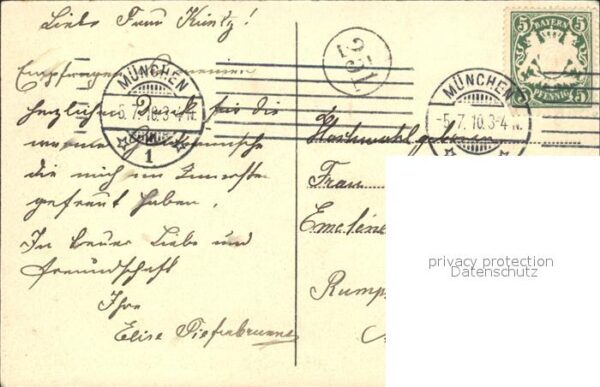 Liebe Frau Küntz!
Empfangen
herzlichen Dank für die
die mich am Innersten
gefreut haben.
In treuer Liebe und
Freundschaft
Ihre
Elise Tiefenbrunner
MÜNCHEN
5.7.10.3-4N.
1
2
31
5 BAYERN 5
5 PFENNIG 5
MÜNCHEN
-5.7.10.3-4N.
Hochwohlgeb
Frau
Emeline
Rump
privacy protection
Datenschutz